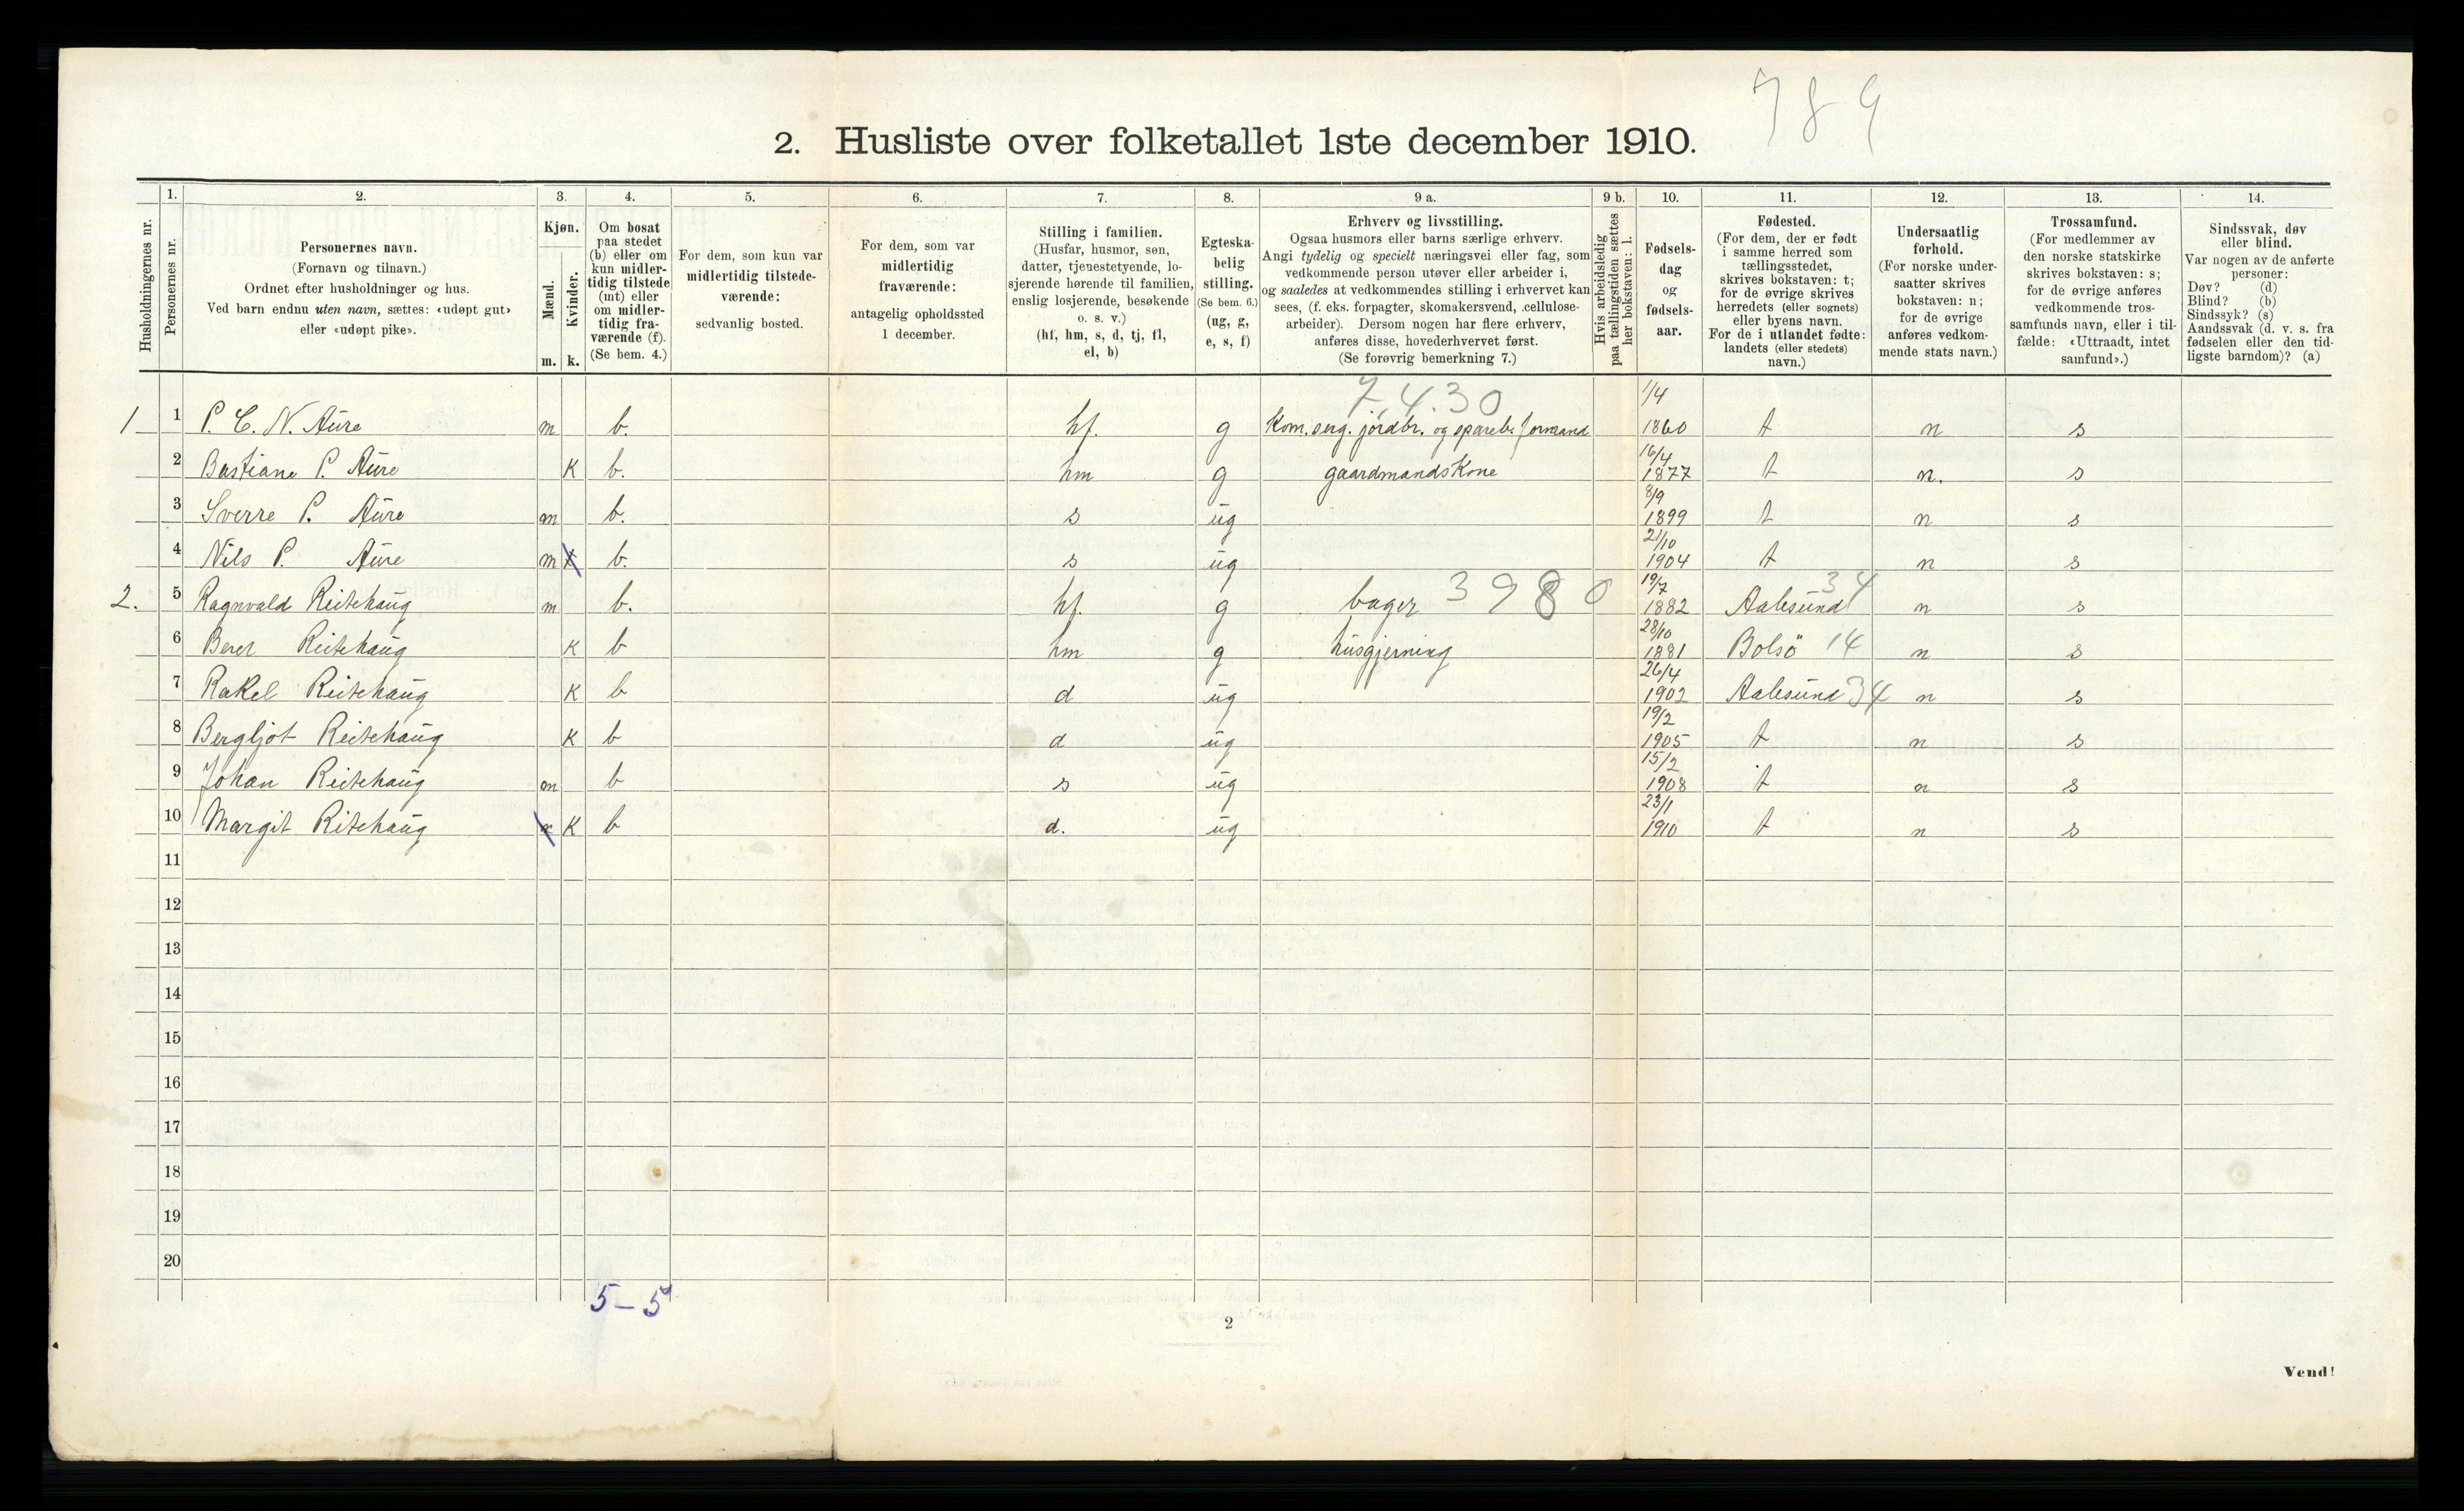 789
2. Husliste over folketallet 1ste december 1910.
Husholdningernes nr.
1.
Personernes nr.
2.
Personernes navn.
(Fornavn og tilnavn.)
Ordnet efter husholdninger og hus.
Ved barn endnu uten navn, sættes: «udøpt gut»
eller «udøpt pike».
3.
Kjøn.
Mænd.
Kvinder.
m. k.
4.
Om bosat
paa stedet
(b) eller om
kun midler-
tidig tilstede
(mt) eller
om midler-
tidig fra-
værende (f).
(Se bem. 4.)
5.
For dem, som kun var
midlertidig tilstede-
værende:
sedvanlig bosted.
6.
For dem, som var
midlertidig
fraværende:
antagelig opholdssted
1 december.
7.
Stilling i familien.
(Husfar, husmor, søn,
datter, tjenestetyende, lo-
sjerende hørende til familien,
enslig losjerende, besøkende
o. s. v.)
(hf, hm, s, d, tj, fl,
el, b)
8.
Egteska-
belig
stilling.
(Se bem. 6.)
(ug, g,
e, s, f)
9 a.
Erhverv og livsstilling.
Ogsaa husmors eller barns særlige erhverv.
Angi tydelig og specielt næringsvei eller fag, som
vedkommende person utøver eller arbeider i,
og saaledes at vedkommendes stilling i erhvervet kan
sees, (f. eks. forpagter, skomakersvend, cellulose-
arbeider). Dersom nogen har flere erhverv,
anføres disse, hovederhvervet først.
(Se forøvrig bemerkning 7.)
9 b.
Hvis arbeidsledig
paa tællingstiden sættes
her bokstaven: l.
10.
Fødsels-
dag
og
fødsels-
aar.
11.
Fødested.
(For dem, der er født
i samme herred som
tællingsstedet,
skrives bokstaven: t;
for de øvrige skrives
herredets (eller sognets)
eller byens navn.
For de i utlandet fødte:
landets (eller stedets)
navn.)
12.
Undersaatlig
forhold.
(For norske under-
saatter skrives
bokstaven: n;
for de øvrige
anføres vedkom-
mende stats navn.)
13.
Trossamfund.
(For medlemmer av
den norske statskirke
skrives bokstaven: s;
for de øvrige anføres
vedkommende tros-
samfunds navn, eller i til-
fælde: «Uttraadt, intet
samfund».)
14.
Sindssvak, døv
eller blind.
Var nogen av de anførte
personer:
Døv? (d)
Blind? (b)
Sindssyk? (s)
Aandssvak (d. v. s. fra
fødselen eller den tid-
ligste barndom)? (a)
7.4.30
1 1 P. C. N. Aure m b. hf. g Kom. serg. jordbr. og spareb. formand 1/4 1860 t n s
2 Bastiane P. Aure K b. hm g gaardmandskone 16/4 1877 t n. s
3 Sverre P. Aure m b. s ug 8/9 1899 t n s
4 Nils P. Aure m b. s ug 21/10 1904 t n s
2. 5 Ragnvald Reitehaug m b. hf. g bager 3980 19/7 1882 Aalesund 34 n s
6 Beret Reitehaug K b hm g husgjerning 28/10 1881 Bolsö 14 n s
7 Rakel Reitehaug K b d ug 26/4 1902 Aalesund 34 n s
8 Bergljot Reitehaug K b d ug 19/2 1905 t n s
9 Johan Reitehaug m b s ug 15/2 1908 t n s
10 Margit Ritehaug K b d. ug 23/1 1910 t n s
11
12
13
14
15
16
17
18
19
20
5-5
2
Vend!